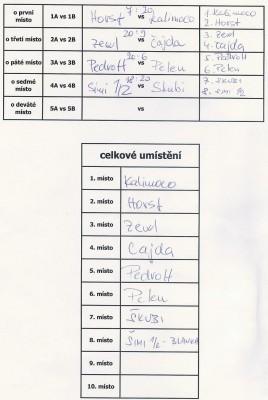 o první místo 1A vs 1B Horst 7:20 vs Kalimoco 1. Kalimoco 2. Horst
o třetí místo 2A vs 2B Zewl 20:9 vs Čajda 3. Zewl 4. Čajda
o páté místo 3A vs 3B Pedroff 20:6 vs Pelen 5. Pedroff 6. Pelen
o sedmé místo 4A vs 4B Šimi 1/2 18:20 vs Škubi 7. Škubi 8. Šimi 1/2
o deváté místo 5A vs 5B vs
celkové umístění
1. místo Kalimoco
2. místo Horst
3. místo Zewl
4. místo Čajda
5. místo Pedroff
6. místo Pelen
7. místo ŠKUBI
8. místo ŠIMI 1/2 - BLANKA
9. místo
10. místo